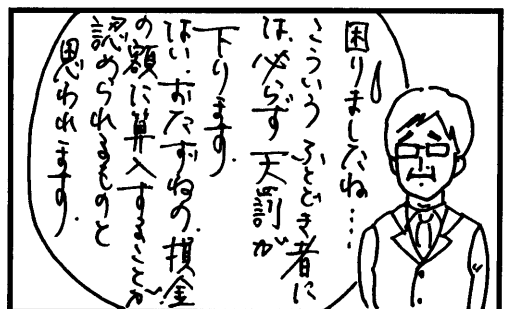 困りましたね…
こういうふとどき者に
は、必らず天罰が
下ります。
はい、おたずねの、損金
の額に算入することが
認められるものと
思われます。